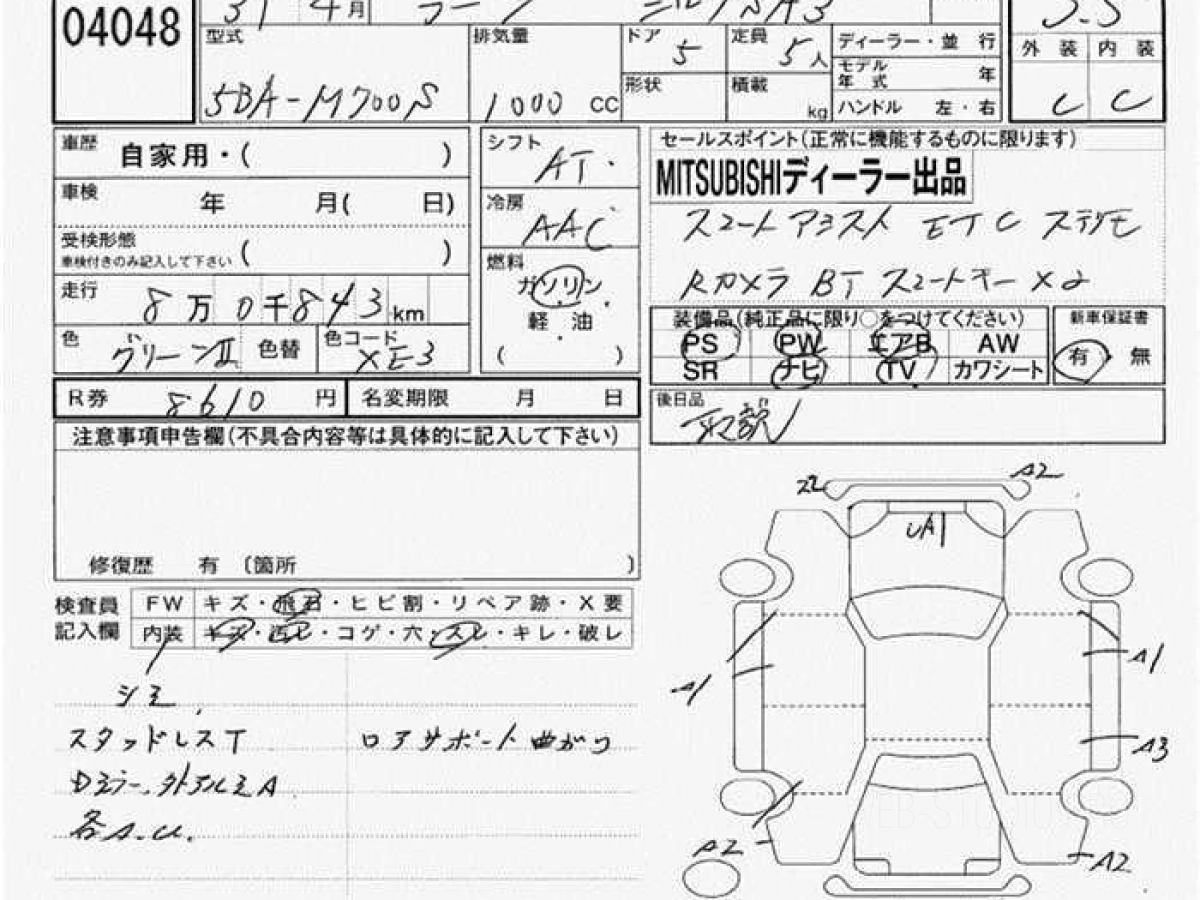 04048
31 4月
型式 5BA-M700S
排気量 1000 CC
ドア 5
定員 5人
形状
積載 kg
ディーラー・並 行
モデル年式 年
ハンドル 左・右
外 装 内 装
C C
車歴 自家用・( )
車検 年 月( 日)
受検形態 ( )
車検付きのみ記入して下さい
走行 8万0千843km
色 グリーンⅡ 色替
色コード XE3
シフト AT
冷房 AAC
燃料
ガソリン
軽 油
( )
セールスポイント(正常に機能するものに限ります)
MITSUBISHIディーラー出品
スマートアシスト ETC ステリモ
Rカメラ BT スマートキー×2
装備品(純正品に限り○をつけてください)
PS PW エアB AW
SR ナビ TV カワシート
新車保証書
有・無
R券 8610 円
名変期限 月 日
後日品
取説
注意事項申告欄(不具合内容等は具体的に記入して下さい)
修復歴 有 〔箇所 〕
検査員記入欄
FW キズ・飛石・ヒビ割・リペア跡・X要
内装 キズ・汚レ・コゲ・穴・スレ・キレ・破レ
シミ
スタッドレスT
ロアサポート曲がり
各A.U.
A2
UA1
A1
A1
A3
A2
A2